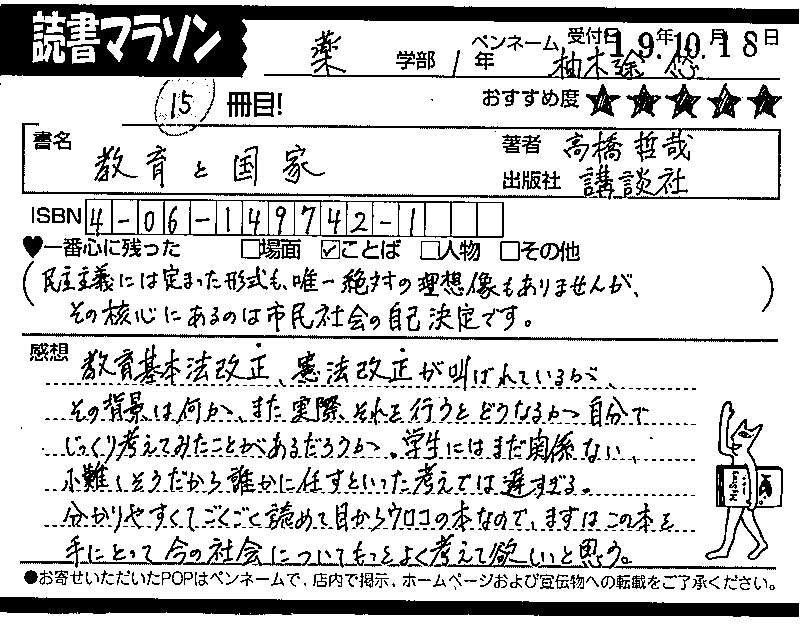 読書マラソン
薬 学部 1 年 ペンネーム 柚木 悠 受付日 19年10月18日
15 冊目! おすすめ度 ★★★★★
書名 教育と国家 著者 高橋哲哉
出版社 講談社
ISBN 4-06-149742-1
♥一番心に残った □場面 ☑ことば □人物 □その他
(民主主義には定まった形式も、唯一絶対の理想像もありませんが、
その核心にあるのは市民社会の自己決定です。)
感想 教育基本法改正、憲法改正が叫ばれているが、
その背景は何か、また実際それを行うとどうなるか、自分で
じっくり考えてみたことがあるだろうか。学生にはまだ関係ない、
小難しそうだから誰かに任すといった考えでは遅すぎる。
分かりやすくてごくごく読めて目からウロコの本なので、まずはこの本を
手にとって今の社会についてもっとよく考えて欲しいと思う。
●お寄せいただいたPOPはペンネームで、店内で掲示、ホームページおよび宣伝物への転載をご了承ください。